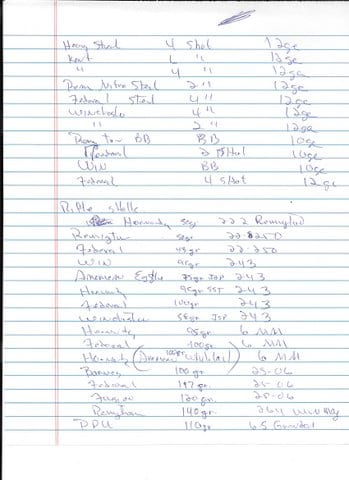 Heavy Steel 4 Shot 12ga
Kent 6 " 12ga
" 4 " 12ga
Rem Nitro Steel 2 " 12ga
Federal Steel 4 " 12ga
Winchester 4 " 12ga
" 2 " 12ga
Rem BB BB 10ga
Federal 2 Shot 10ga
Win BB 10ga
Federal 4 Shot 12ga
Rifle shells
Hornady 50gr 222 Remington
Remington 22-250
Federal 22-250
Win 95gr 243
American Eagle 75gr JHP 243
Hornady 95gr SST 243
Federal 100gr 243
Winchester 55gr 243
Hornady 95gr 6 MM
Federal 100gr 6 MM
Hornady (American Whitetail) 100gr 6 MM
100gr 25-06
Federal 117gr 25-06
Fusion 120gr 25-06
Remington 140gr 264 Win Mag
PPU 110gr 6.5 Grendel